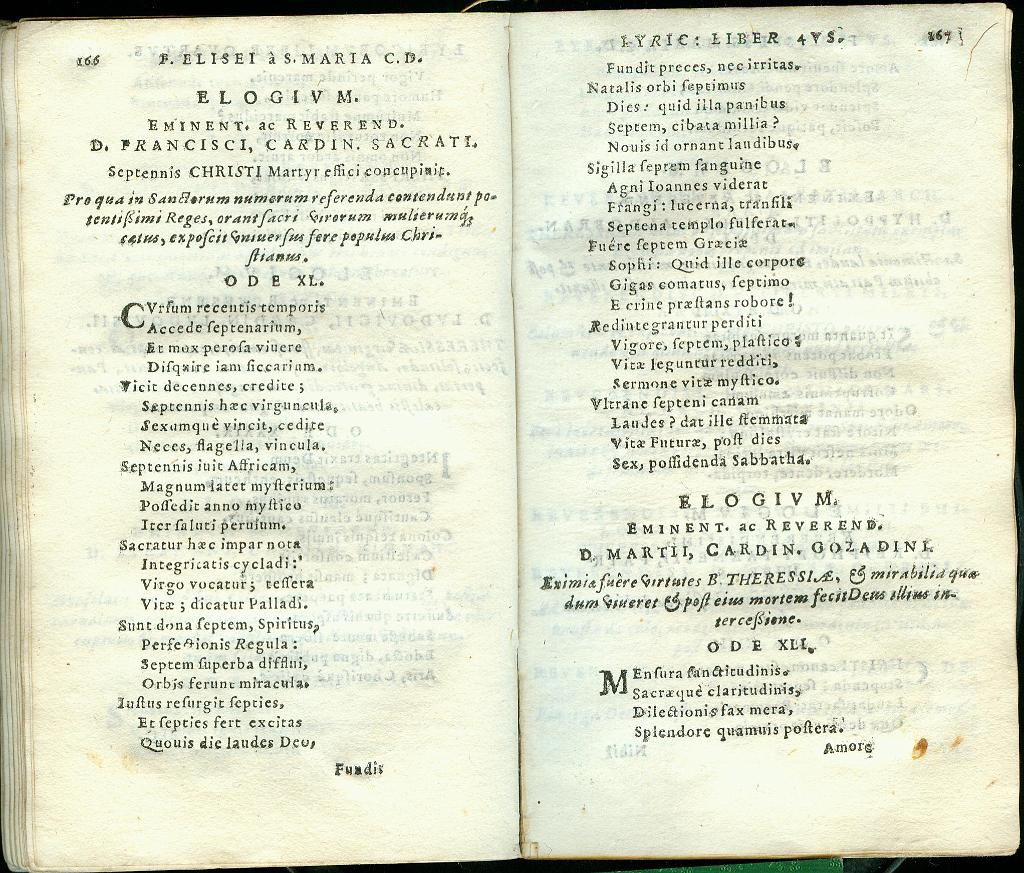 166 F. ELISEI à S. MARIA C. D.
ELOGIVM.
EMINENT. ac REVEREND.
D. FRANCISCI, CARDIN. SACRATI.
Septennis CHRISTI Martyr effici concupiuit.
Pro qua in Sanctorum numerum referenda contendunt po-
tentißimi Reges, orant sacri virorum mulierumq;
cœtus, exposcit vniuersus fere populus Chri-
stianus.
ODE XL.
CVrsum recentis temporis
Accede septenarium,
Et mox perosa viuere
Disquire iam siccarium.
Vicit decennes, credite;
Septennis hæc virguncula,
Sexumquè vincit, cedite
Neces, flagella, vincula.
Septennis iuit Affricam,
Magnum latet mysterium:
Possedit anno mystico
Iter saluti peruium.
Sacratur hæc impar nota
Integritatis cycladi:
Virgo vocatur; tessera
Vitæ; dicatur Palladi.
Sunt dona septem, Spiritus,
Perfectionis Regula:
Septem superba diffluì,
Orbis ferunt miracula.
Iustus resurgit septies,
Et septies fert excitas
Quouis die laudes Deo,
Fundit
LYRIC: LIBER 4VS. 167
Fundit preces, nec irritas.
Natalis orbi septimus
Dies: quid illa panibus
Septem, cibata millia?
Nouis id ornant laudibus.
Sigilla septem sanguine
Agni Ioannes viderat
Frangi: lucerna, transili
Septena templo fulserat.
Fuêre septem Græciæ
Sophi: Quid ille corpore
Gigas comatus, septimo
E crine præstans robore!
Redintegrantur perditi
Vigore, septem, plastico:
Vitæ leguntur redditi,
Sermone vitæ mystico.
Vltrane septeni canam
Laudes? dat ille stemmata
Vitæ Futuræ, post dies
Sex, possidenda Sabbatha.
ELOGIVM.
EMINENT. ac REVEREND.
D. MARTII, CARDIN. GOZADINI.
Eximiæ fuêre virtutes B. THERESSIÆ, & mirabilia quæ
dum viueret & post eius mortem fecit Deus illius in-
tercessione.
ODE XLI.
MEnsura sanctitudinis.
Sacræquè claritudinis,
Dilectionis fax mera,
Splendore quamuis postera.
Amore